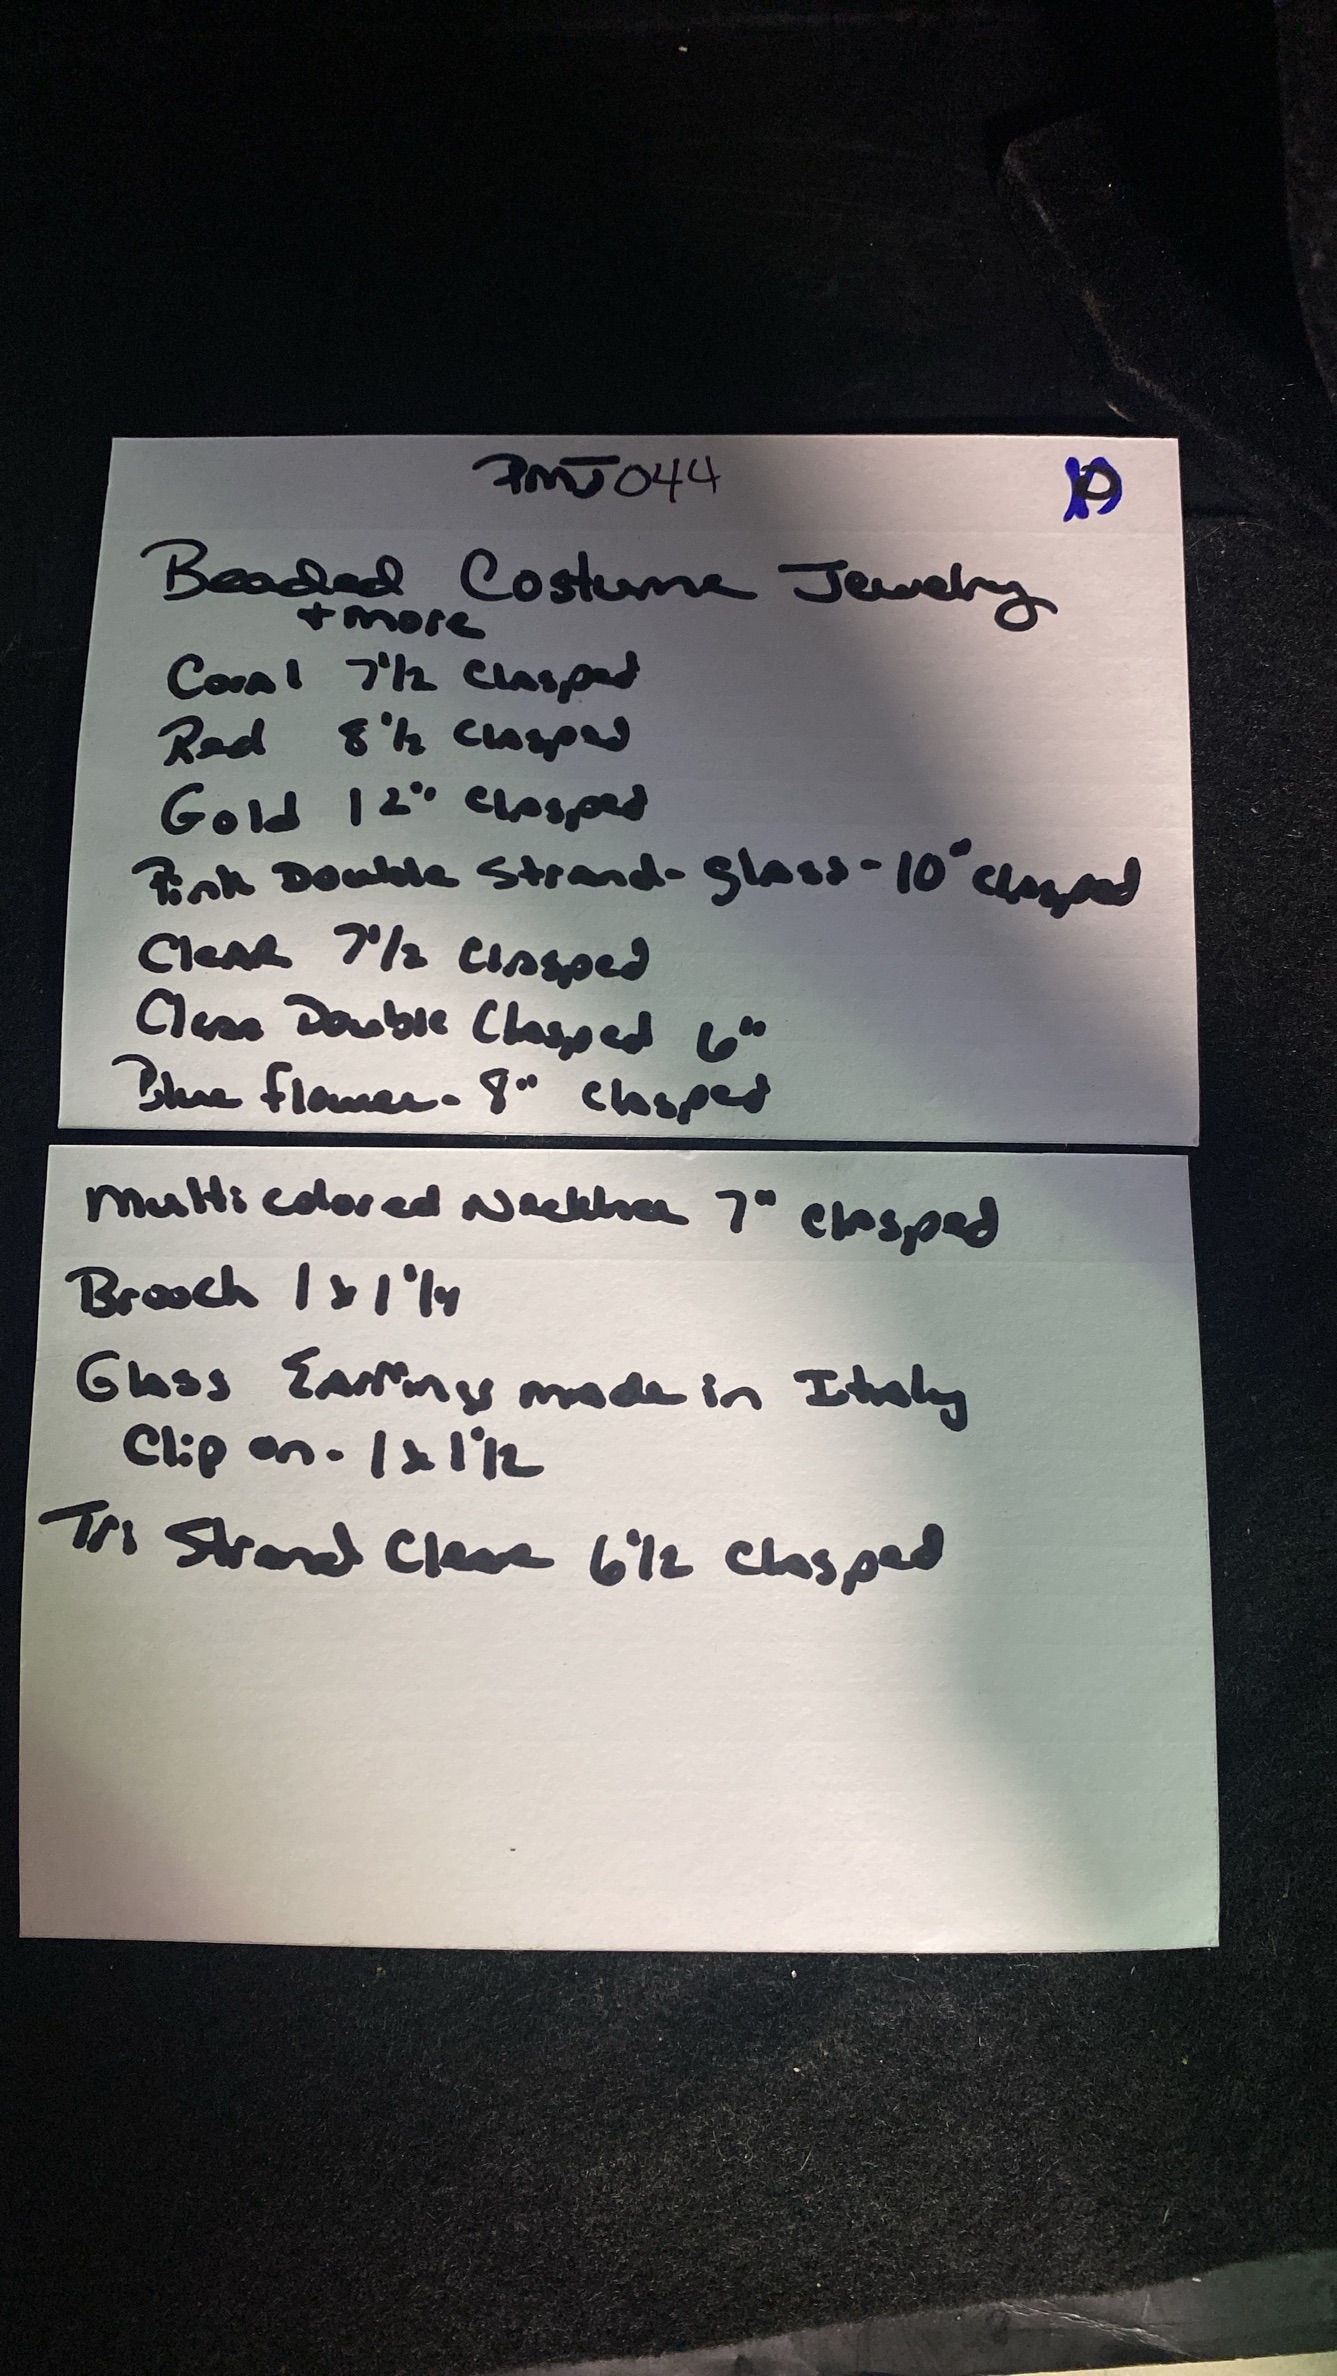 PMJ044
Beaded Costume Jewelry
+ more
Coral 7 1/2 Clasped
Red 8 1/2 Clasped
Gold 12" Clasped
Pink Double Strand - glass - 10" Clasped
Clear 7 1/2 Clasped
Clear Double Clasped 6"
Blue flower - 8" Clasped
Multi colored Necklace 7" Clasped
Brooch 1 x 1 1/4
Glass Earrings made in Italy
Clip on - 1 x 1 1/2
Tri Strand Clear 6 1/2 Clasped